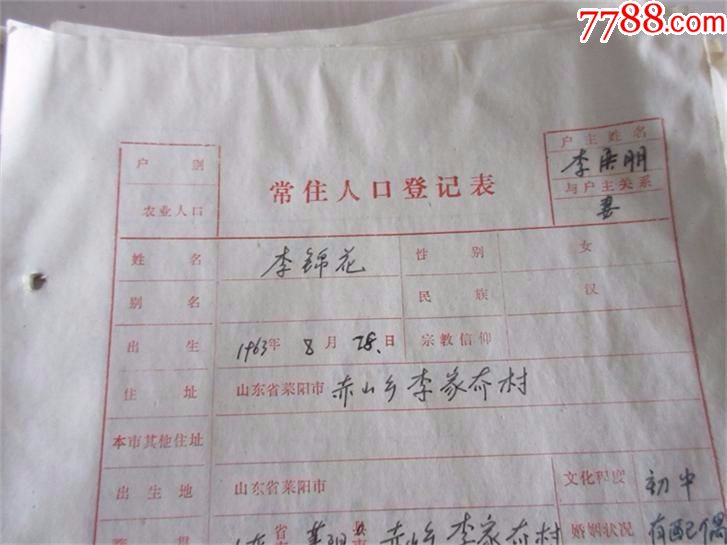 7788.com
中国收藏热线
户主姓名
户别
李
明
常住人口登记表
与户主关系
农业人口
妻
姓名 李锦花 性别 女
别名 民族 汉
出生 1963年 8月 28日 宗教信仰
住址 山东省莱阳市 赤山乡李家夼村
本市其他住址
出生地 山东省莱阳市 文化程度 初中
省 赤山乡李家夼村 婚姻状况 有配偶